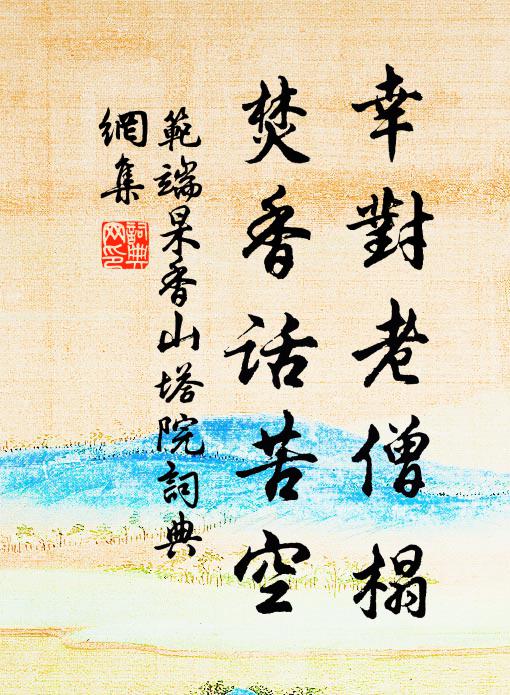 幸對老僧榻
焚香話苦空
範端杲香山塔院詞典
網集
詞典
网印